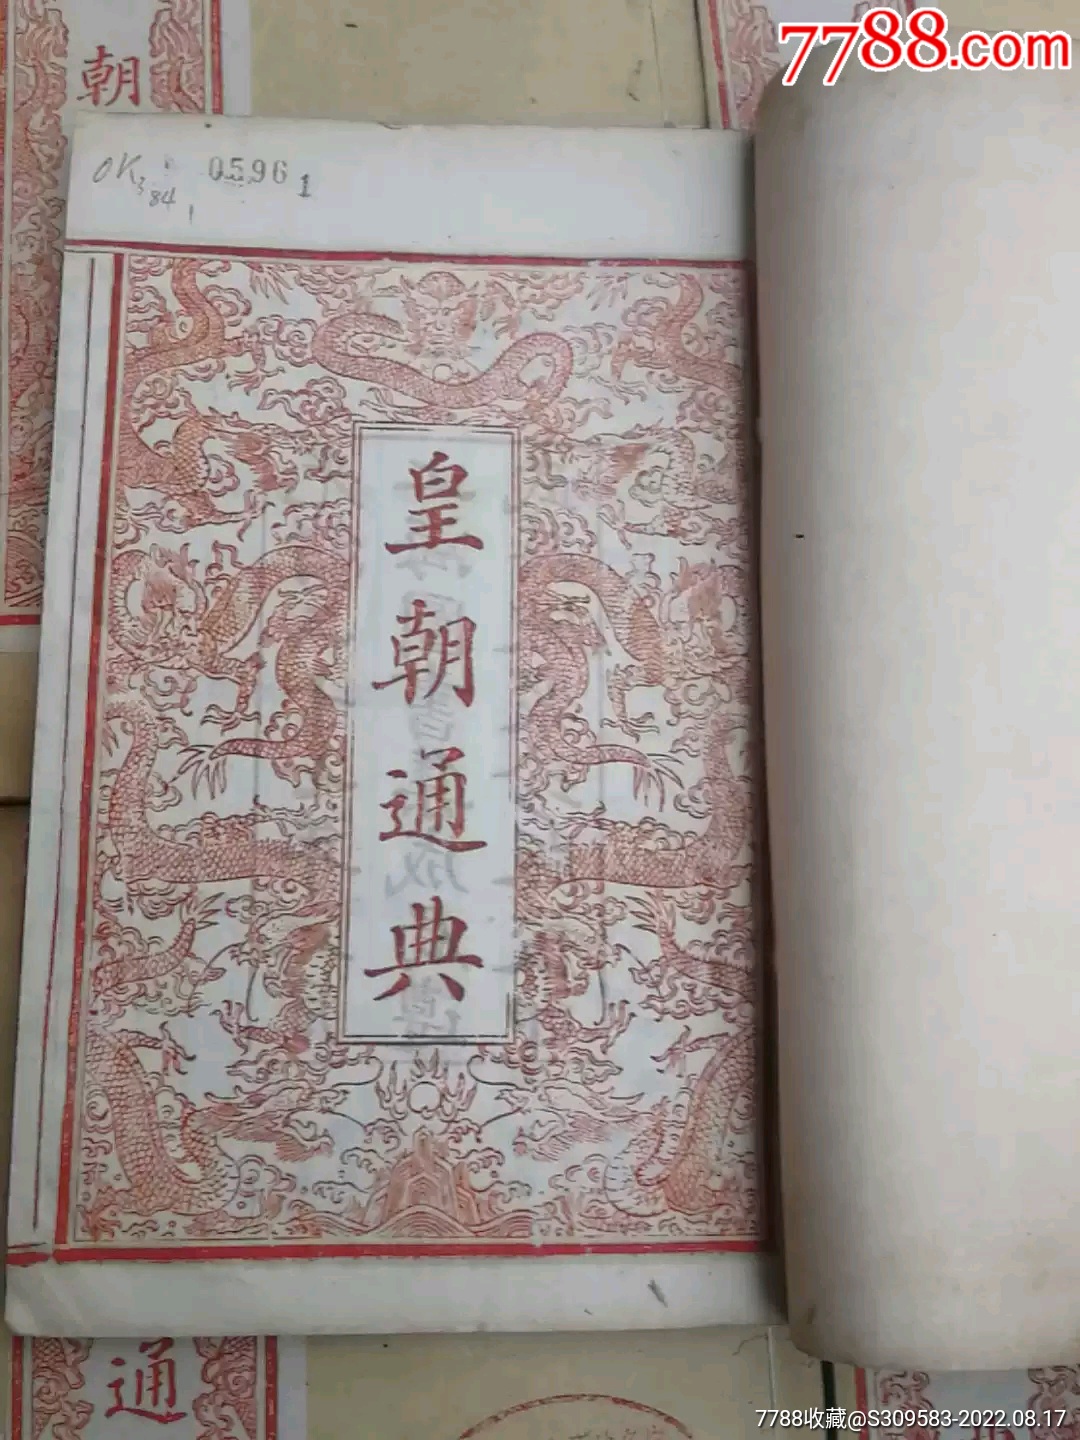 7788.com
朝
OK3 84 1
0596 1
皇朝通典
通
7788收藏@S309583-2022.08.17